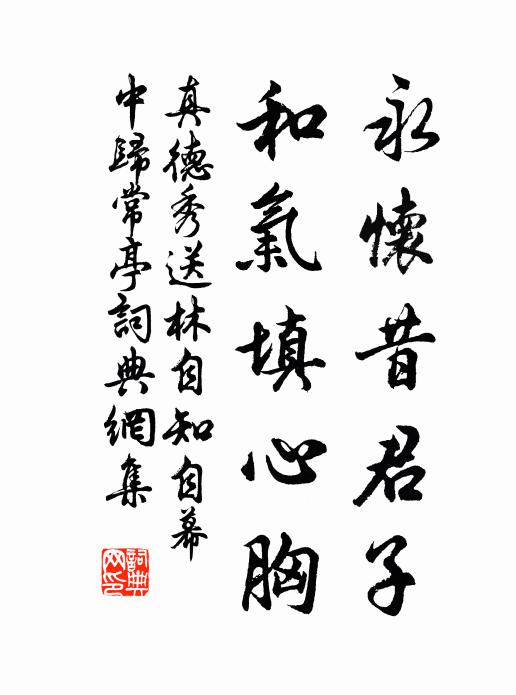 永懷昔君子
和氣填心胸
真德秀送林自知自幕
中歸常亭詞典網集
詞典
网印